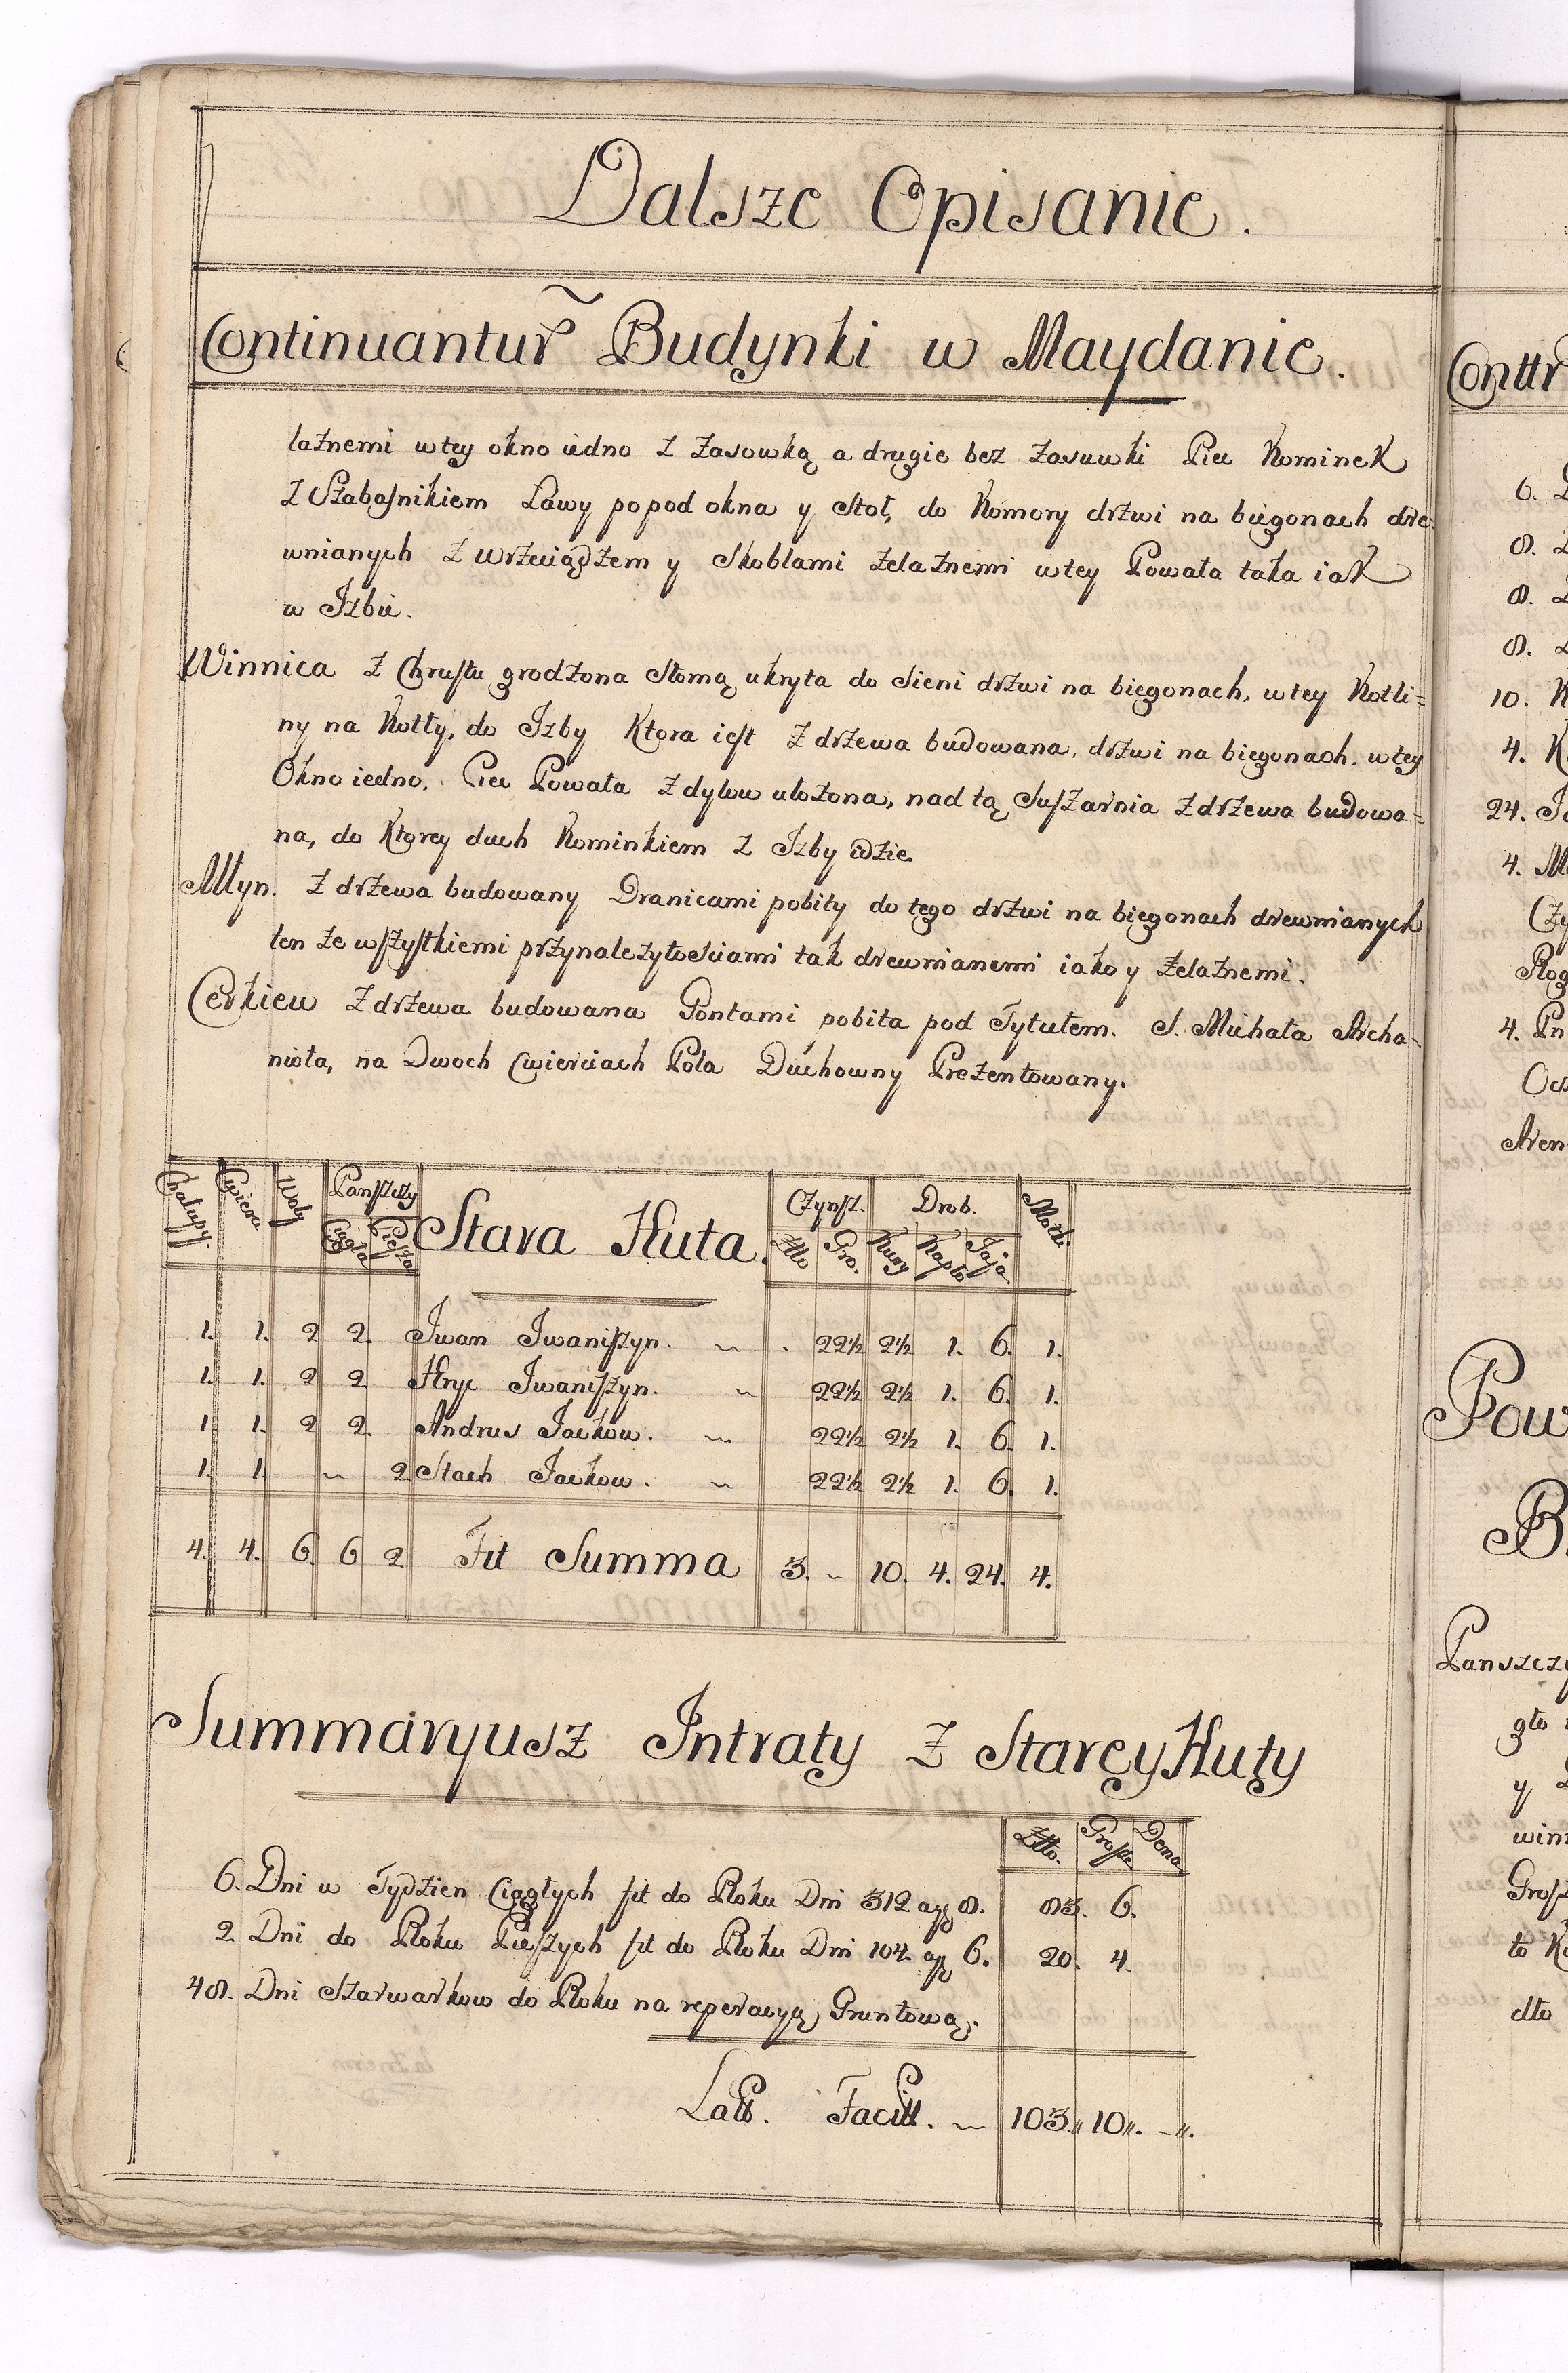 Dalsze Opisanie.
Continuantur Budynki w Maydanie.
laznemi w tey okno iedno z zasowką a drugie bez zasuwki Piec Kominek
z Szabaśnikiem Ławy popod okna y Stoł, do Komory drzwi na biegonach dre
wnianych z wrzeciądzem y Skoblami żelaznemi w tey Powała taka iak
w Izbie.
Winnica z Chrustu grodzona Słomą ukryta do Sieni drzwi na biegonach, w tey Kotli=
ny na Kotły, do Izby Ktora iest z drzewa budowana, drzwi na biegonach. w tey
Okno iedno, Piec Powała z dylow ułożona, nad tą Suszarnia z drzewa budowa=
na, do Ktorey duch Kominkiem z Izby idzie
Młyn. z drzewa budowany Dranicami pobity do tego drzwi na biegonach drewnianych
ten ze wszystkiemi przynależytościami tak drewnianemi iako y żelaznemi.
Cerkiew z drzewa budowana Gontami pobita pod Tytułem. S. Michała Archa=
nioła, na Dwoch Cwierciach Pola Duchowny Prezentowany.
Chałupy. Cwierci Woły Panszczyzny Stara Huta. Czynsz. Drob. Motki
Ciągła Piesza Złło Gro. Kury Kapło Jaja
1. 1. 2 2. Iwan Iwaniszyn. ~ . 22½ 2½ 1. 6. 1.
1. 1. 2 2 Hryc Iwaniszyn. ~ 22½ 2½ 1. 6. 1.
1. 1. 2 2. Andrus Jackow. ~ 22½ 2½ 1. 6. 1.
1. 1. ~ 2 Stach Jackow. ~ 22½ 2½ 1. 6. 1.
4. 4. 6. 6 2 Fit Summa 3. ~ 10. 4. 24. 4.
Summaryusz Intraty z Starey Huty
Złło. Grosze Dena
6. Dni w Tydzien Ciągłych fit do Roku Dni 312 a gg 8. 83. 6.
2 Dni do Roku Pieszych fit do Roku Dni 104. a g 6. 20. 4.
48. Dni Szarwarkow do Roku na reperacyą Gruntową.
Facitt. ~ 103.„ 10„. -„.
Conttr
6.
8.
8.
8.
10. K
4. K
24. Ja
4. Mo
Czy
Rog
4. Pn
Ocz
Aren
Pow
B
Panszczy
gto
y
winn
Grosz
to K
dto